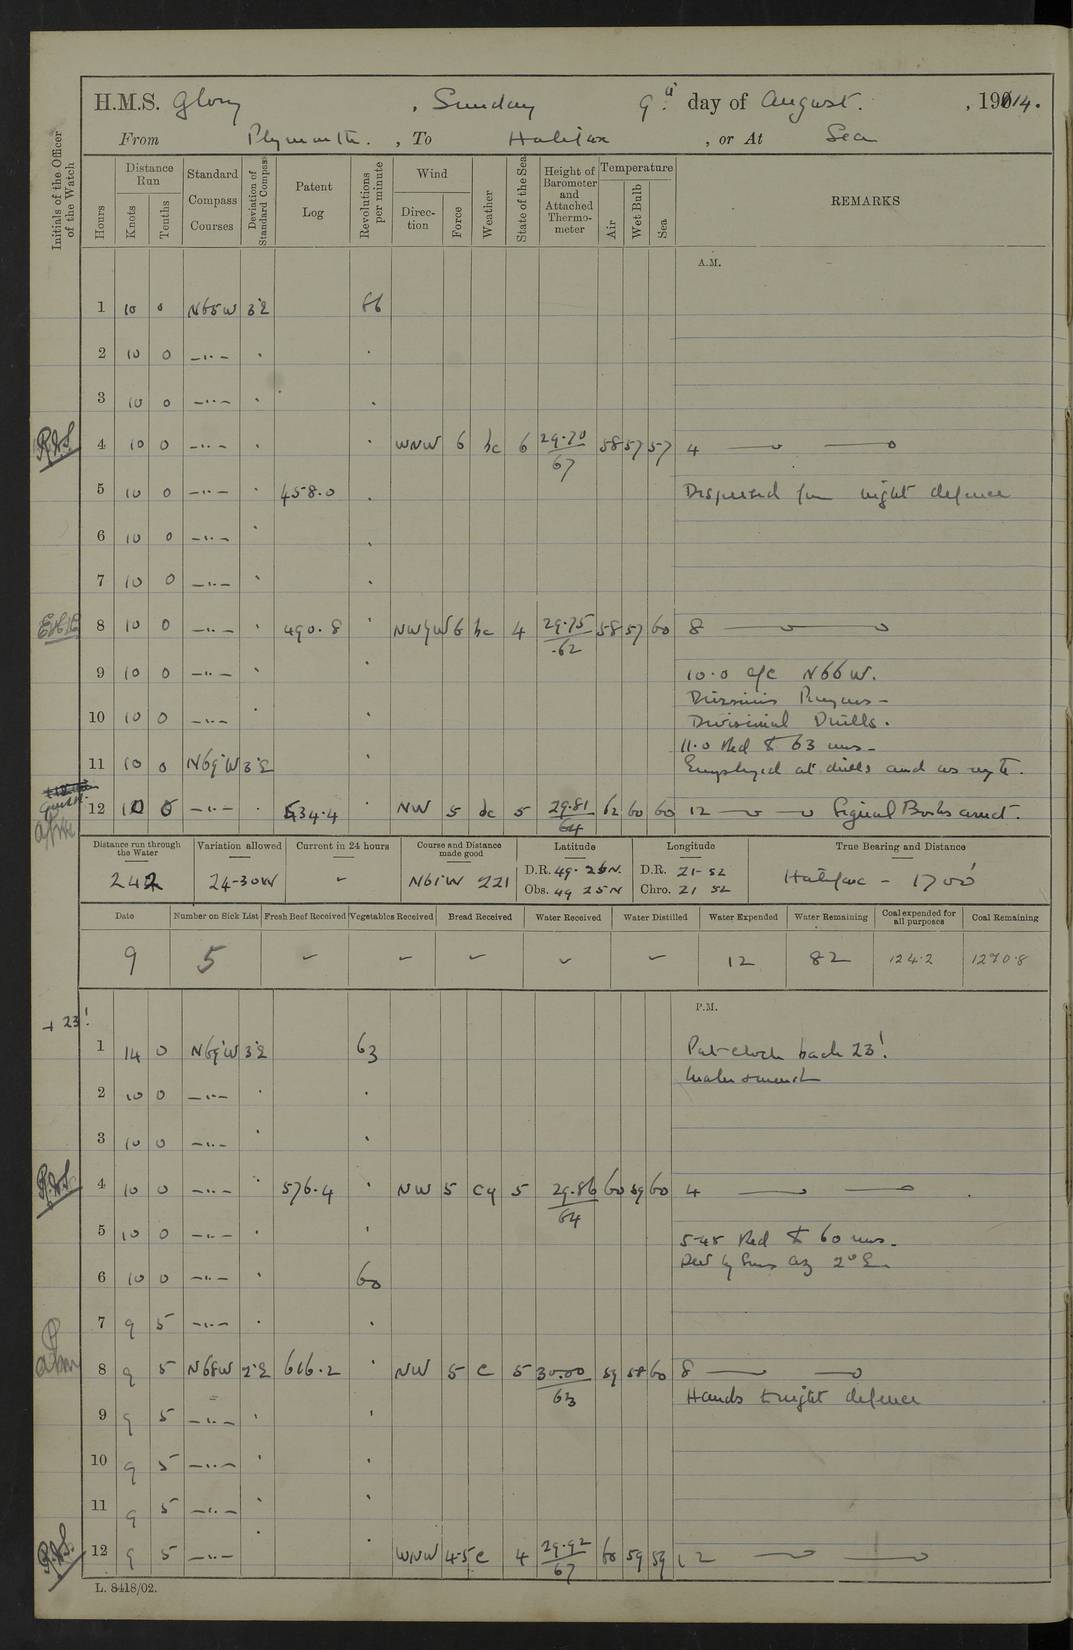 H.M.S. Glory, Sunday 9th day of August, 1914.
From Plymouth, To Halifax, or At Sea
Initials of the Officer of the Watch
Hours
Distance Run
Knots
Tenths
Standard Compass Courses
Deviation of Standard Compass
Patent Log
Revolutions per minute
Wind
Direction
Force
Weather
State of the Sea
Height of Barometer and Attached Thermometer
Temperature
Air
Wet Bulb
Sea
REMARKS
A.M.
1 10 0 N65W 3°E 66
2 10 0 -"-
3 10 0 -"-
R.W.S. 4 10 0 -"- WNW 6 bc 6 29.70 67 58 57 57 4
5 10 0 -"- 458.0 Dispersed from night defence
6 10 0 -"-
7 10 0 -"-
8 10 0 -"- 490.8 NWyW 6 bc 4 29.75 62 58 57 60 8
9 10 0 -"- 10.0 a/c N66W.
Divisions Prayers -
10 10 0 -"- Divisional Drills.
11.0 Red to 63 revs -
11 10 0 N69°W 3°E Employed at drills and as reqte.
12 10 0 -"- 534.4 NW 5 bc 5 29.81 64 62 60 60 12 Signal Books correct.
Distance run through the Water
Variation allowed
Current in 24 hours
Course and Distance made good
Latitude
Longitude
True Bearing and Distance
242 24-30W - N61°W 221 D.R. 49. 26 N. D.R. 21-52 Halifax - 1700'
Obs. 49 25 N Chro. 21 52
Date
Number on Sick List
Fresh Beef Received
Vegetables Received
Bread Received
Water Received
Water Distilled
Water Expended
Water Remaining
Coal expended for all purposes
Coal Remaining
9 5 - - - - - 12 82 124.2 1270.8
P.M.
+ 23'
1 14 0 N69°W 3°E 63 Put clock back 23'.
2 10 0 -"-
3 10 0 -"-
R.W.S. 4 10 0 -"- 576.4 NW 5 cq 5 29.86 64 60 59 60 4
5 10 0 -"- 5-45 Red to 60 revs.
Dev by Suns az 2°E
6 10 0 -"- 60
7 9 5 -"-
8 9 5 N68W 2°E 616.2 NW 5 c 5 30.00 63 59 58 60 8
Hands to night defence
9 9 5 -"-
10 9 5 -"-
11 9 5 -"-
R.W.S. 12 9 5 -"- WNW 4.5 c 4 29.92 67 60 59 59 12
L. 8418/02.